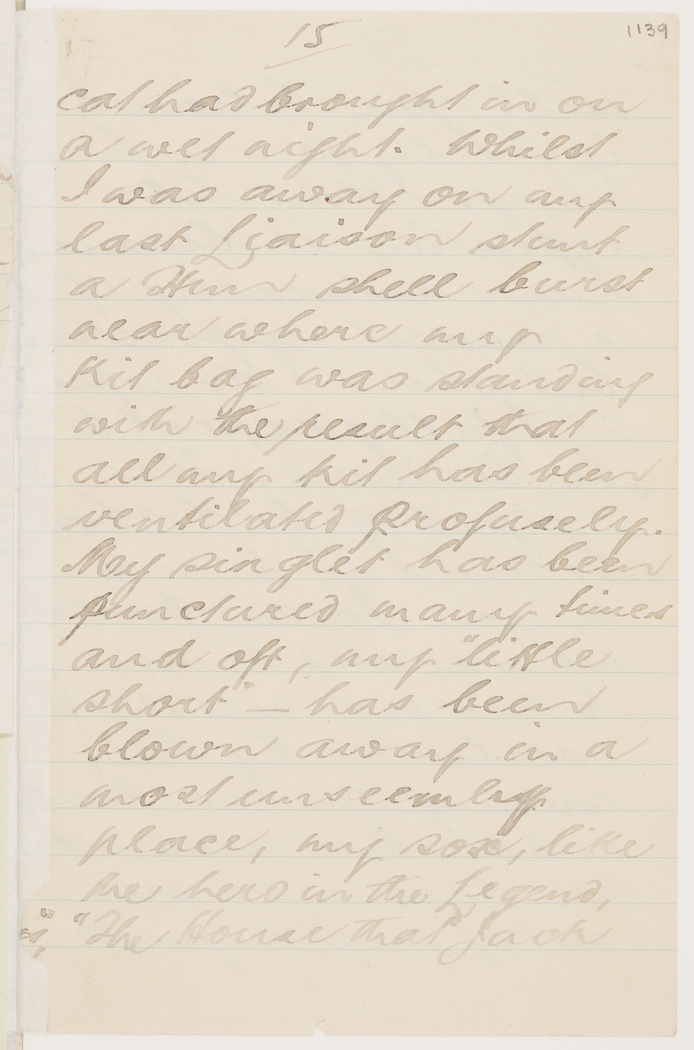 15
1139
cat had brought in on
a wet night. Whilst
I was away on my
last Liaison stunt
a Hun shell burst
near where my
Kit bag was standing
with the result that
all my kit has been
ventilated profusely.
My singlet has been
punctured many times
and oft, my "little
short" — has been
blown away in a
most unseemly
place, my sox, like
the hero in the Legend,
"The House that Jack